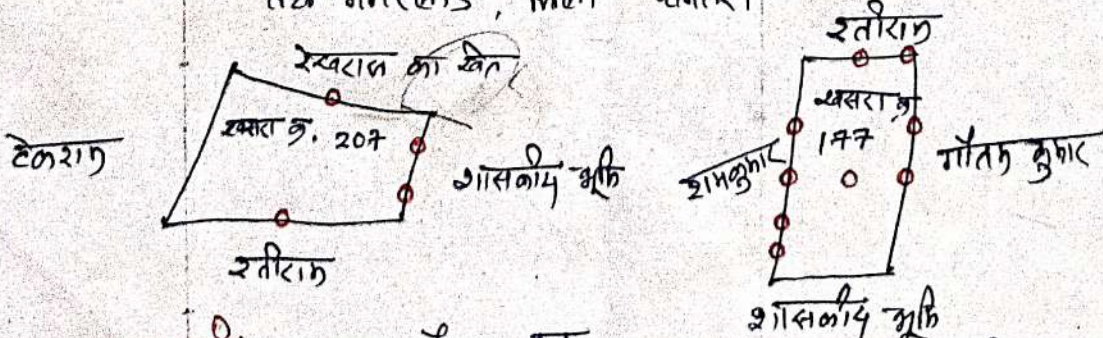 रतीराम
रेखराज का खेत
खसरा क्र. 207
टेकराम
शासकीय भूमि
रतीराम
खसरा क्र
177
रामकुमार
गौतम कुमार
शासकीय भूमि